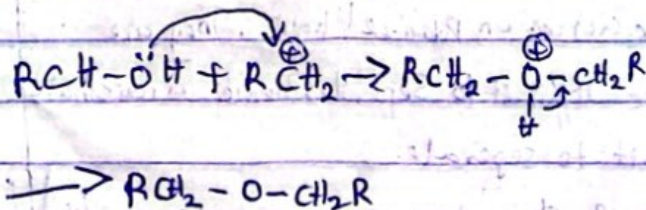 RCH-ÖH + RC⊕H₂ → RCH₂-O⊕-CH₂R
H
→ RCH₂-O-CH₂R